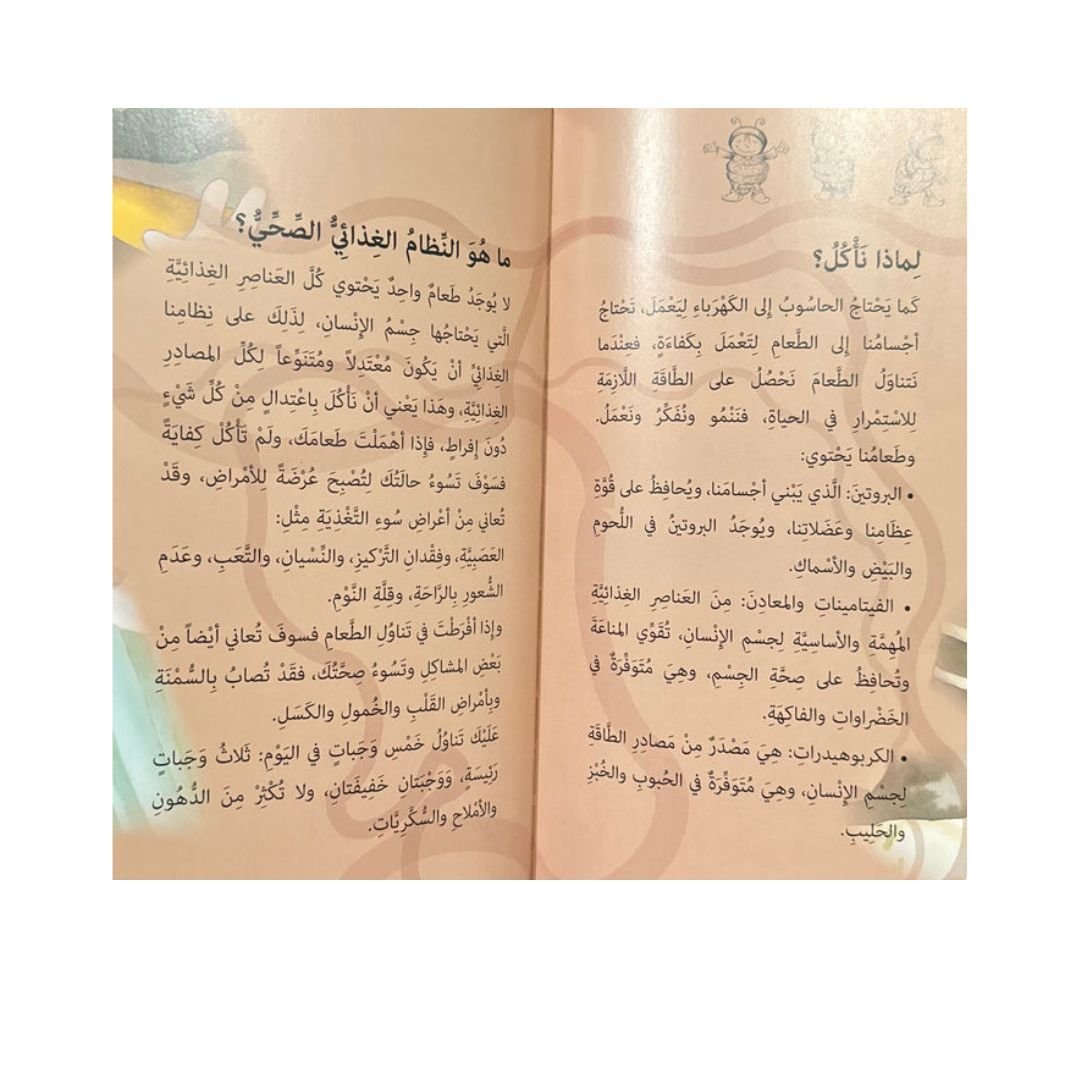 لِماذا نَأْكُلُ؟
كَما يَحْتاجُ الحاسُوبُ إِلى الكَهْرَباءِ لِيَعْمَلَ، تَحْتاجُ
أجْسامُنا إِلى الطَّعامِ لِتَعْمَلَ بِكَفاءَةٍ، فعِنْدَما
نَتناوَلُ الطَّعامَ نَحْصُلُ على الطَّاقَةِ اللَّازِمَةِ
لِلاسْتِمْرارِ في الحياةِ، فَنَنْمُو ونُفَكِّرُ ونَعْمَلُ.
وطَعامُنا يَحْتوي:
• البروتينَ: الَّذي يَبْني أجْسامَنا، ويُحافِظُ على قُوَّةِ
عظَامنا وعَضَلاتِنا، ويُوجَدُ البروتينُ في اللُّحومِ
والبَيْضِ والأَسْماكِ.
• الفيتاميناتِ والمعادِنَ: مِنَ العَناصِرِ الغِذائِيَّةِ
المُهِمَّةِ والأساسِيَّةِ لِجِسْمِ الإِنْسانِ، تُقَوِّي المناعَةَ
وتُحافِظُ على صِحَّةِ الجِسْمِ، وهِيَ مُتَوَفِّرَةٌ في
الخَضْراواتِ والفاكِهَةِ.
• الكربوهيدراتِ: هِيَ مَصْدَرٌ مِنْ مَصادِرِ الطَّاقَةِ
لِجِسْمِ الإِنْسانِ، وهِيَ مُتَوَفِّرَةٌ في الحُبوبِ والخُبْزِ
والحَلِيبِ.
ما هُوَ النِّظامُ الغِذائِيُّ الصِّحِّيُّ؟
لا يُوجَدُ طَعامٌ واحِدٌ يَحْتوي كُلَّ العَناصِرِ الغِذائِيَّةِ
الَّتي يَحْتاجُها جِسْمُ الإِنْسانِ، لِذَلِكَ على نِظامِنا
الغِذائِيِّ أنْ يَكُونَ مُعْتَدِلاً ومُتَنَوِّعاً لِكُلِّ المصادِرِ
الغِذائِيَّةِ، وهَذا يَعْني أنْ نَأْكُلَ بِاعْتِدالٍ مِنْ كُلِّ شَيْءٍ
دُونَ إِفراطٍ، فإِذا أهْمَلْتَ طَعامَكَ، ولَمْ تَأْكُلْ كِفايَةً
فسَوْفَ تَسُوءُ حالَتُكَ لِتُصْبِحَ عُرْضَةً لِلأمْراضِ، وقَدْ
تُعاني مِنْ أعْراضِ سُوءِ التَّغْذِيَةِ مِثْلِ:
العَصَبِيَّةِ، وفِقْدانِ التَّرْكيزِ، والنِّسْيانِ، والتَّعَبِ، وعَدَمِ
الشُّعورِ بِالرَّاحَةِ، وقِلَّةِ النَّوْمِ.
وإِذا أفْرَطْتَ في تَناوُلِ الطَّعامِ فسوفَ تُعاني أيْضاً مِنْ
بَعْضِ المشاكِلِ وتَسُوءُ صِحَّتُكَ، فقَدْ تُصابُ بِالسُّمْنَةِ
وبِأمْراضِ القَلْبِ والخُمولِ والكَسَلِ.
عَلَيْكَ تَناوُلُ خَمْسِ وَجَباتٍ في اليَوْمِ: ثَلاثُ وَجَباتٍ
رَئِيسَةٍ، ووَجْبَتانِ خَفِيفَتانِ، ولا تُكْثِرْ مِنَ الدُّهُونِ
والأمْلاحِ والسُّكَّرِيَّاتِ.